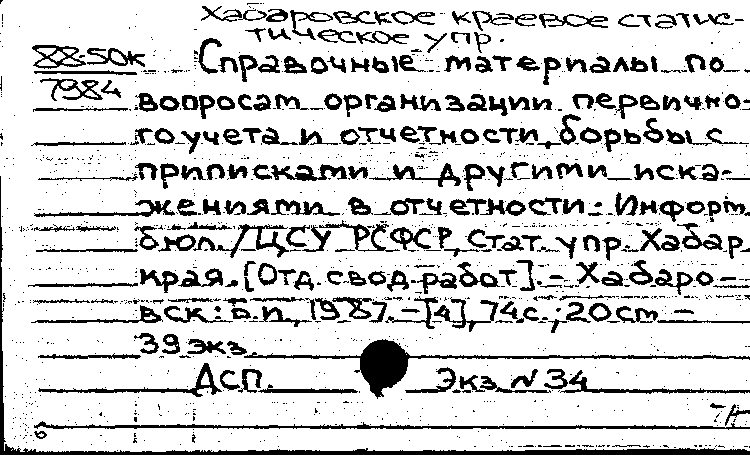 Хабаровское краевое статис-
тическое упр.
88-50к
7984
Справочные материалы по
вопросам организации первично-
го учета и отчетности, борьбы с
приписками и другими иска-
жениями в отчетности: Информ.
бюл. / ЦСУ РСФСР, Стат. упр. Хабар.
края. [Отд. свод. работ]. – Хабаро-
вск: Б.и., 1987. – [4], 74с.; 20cm –
39 экз.
ДСП. Экз. №34
6